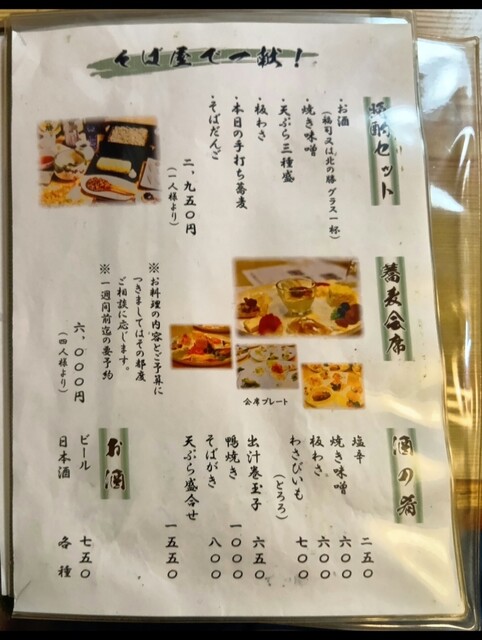 そば屋で一献！
晩酌セット
・お酒
（福司又は、北の勝 グラス一杯）
・焼き味噌
・天ぷら三種盛
・板わさ
・本日の手打ち蕎麦
・そばだんご
二、九五〇円
（一人様より）
蕎麦会席
会席プレート
※お料理の内容とご予算に
つきましてはその都度
ご相談に応じます。
※一週間前迄の要予約
六、〇〇〇円
（四人様より）
酒の肴
塩辛 二五〇
焼き味噌 六〇〇
板わさ 六〇〇
わさびいも 七〇〇
（とろろ）
出汁巻玉子 六五〇
鴨焼き 一〇〇〇
そばがき 八〇〇
天ぷら盛合せ 一五五〇
お酒
ビール 七五〇
日本酒 各種